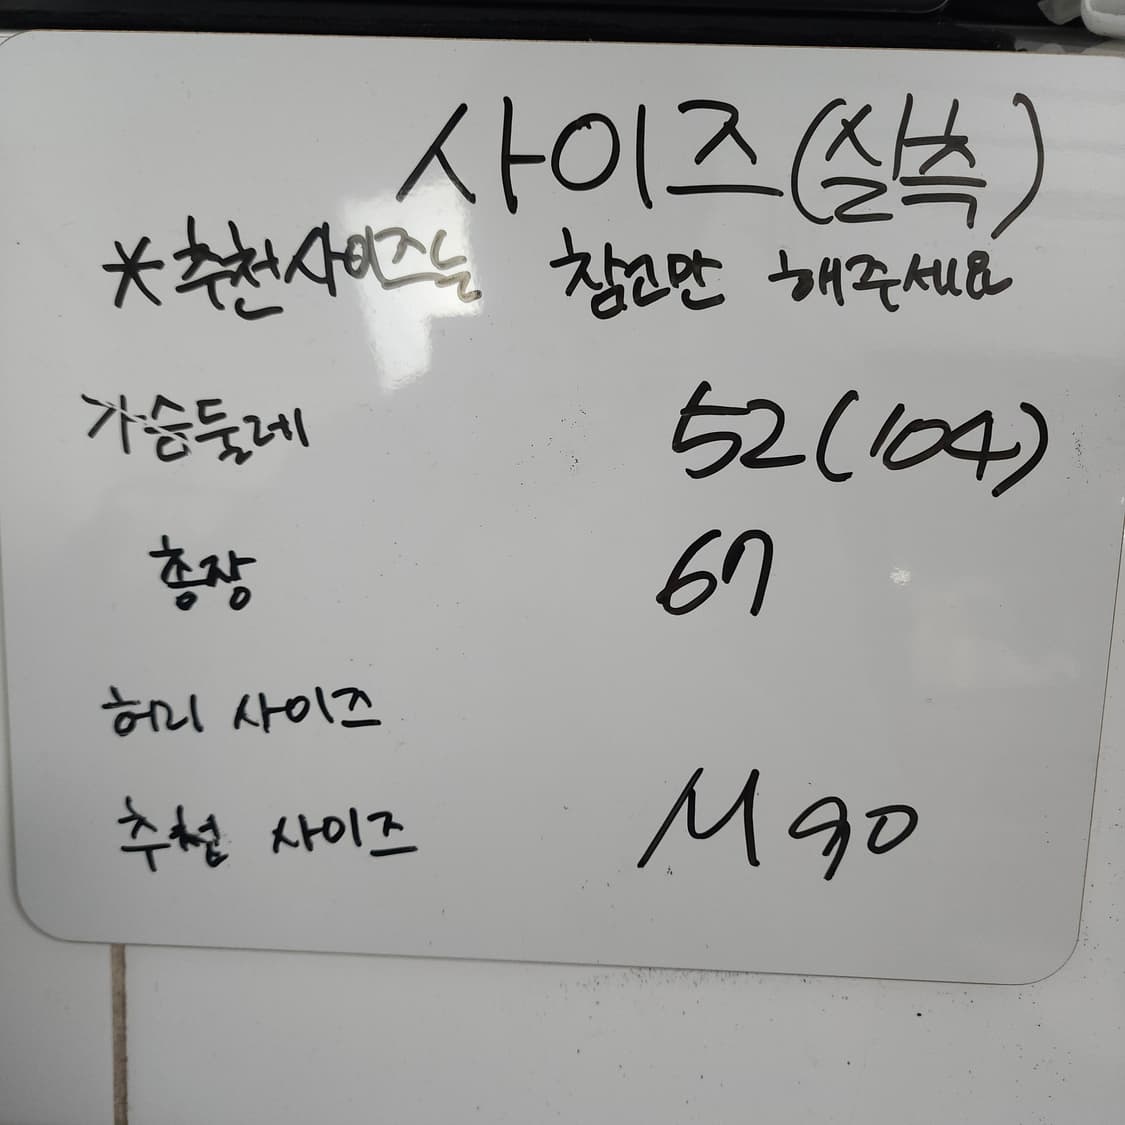 사이즈(실측)
*추천사이즈는 참고만 해주세요
가슴둘레 52(104)
총장 67
허리 사이즈
추천 사이즈 M 90